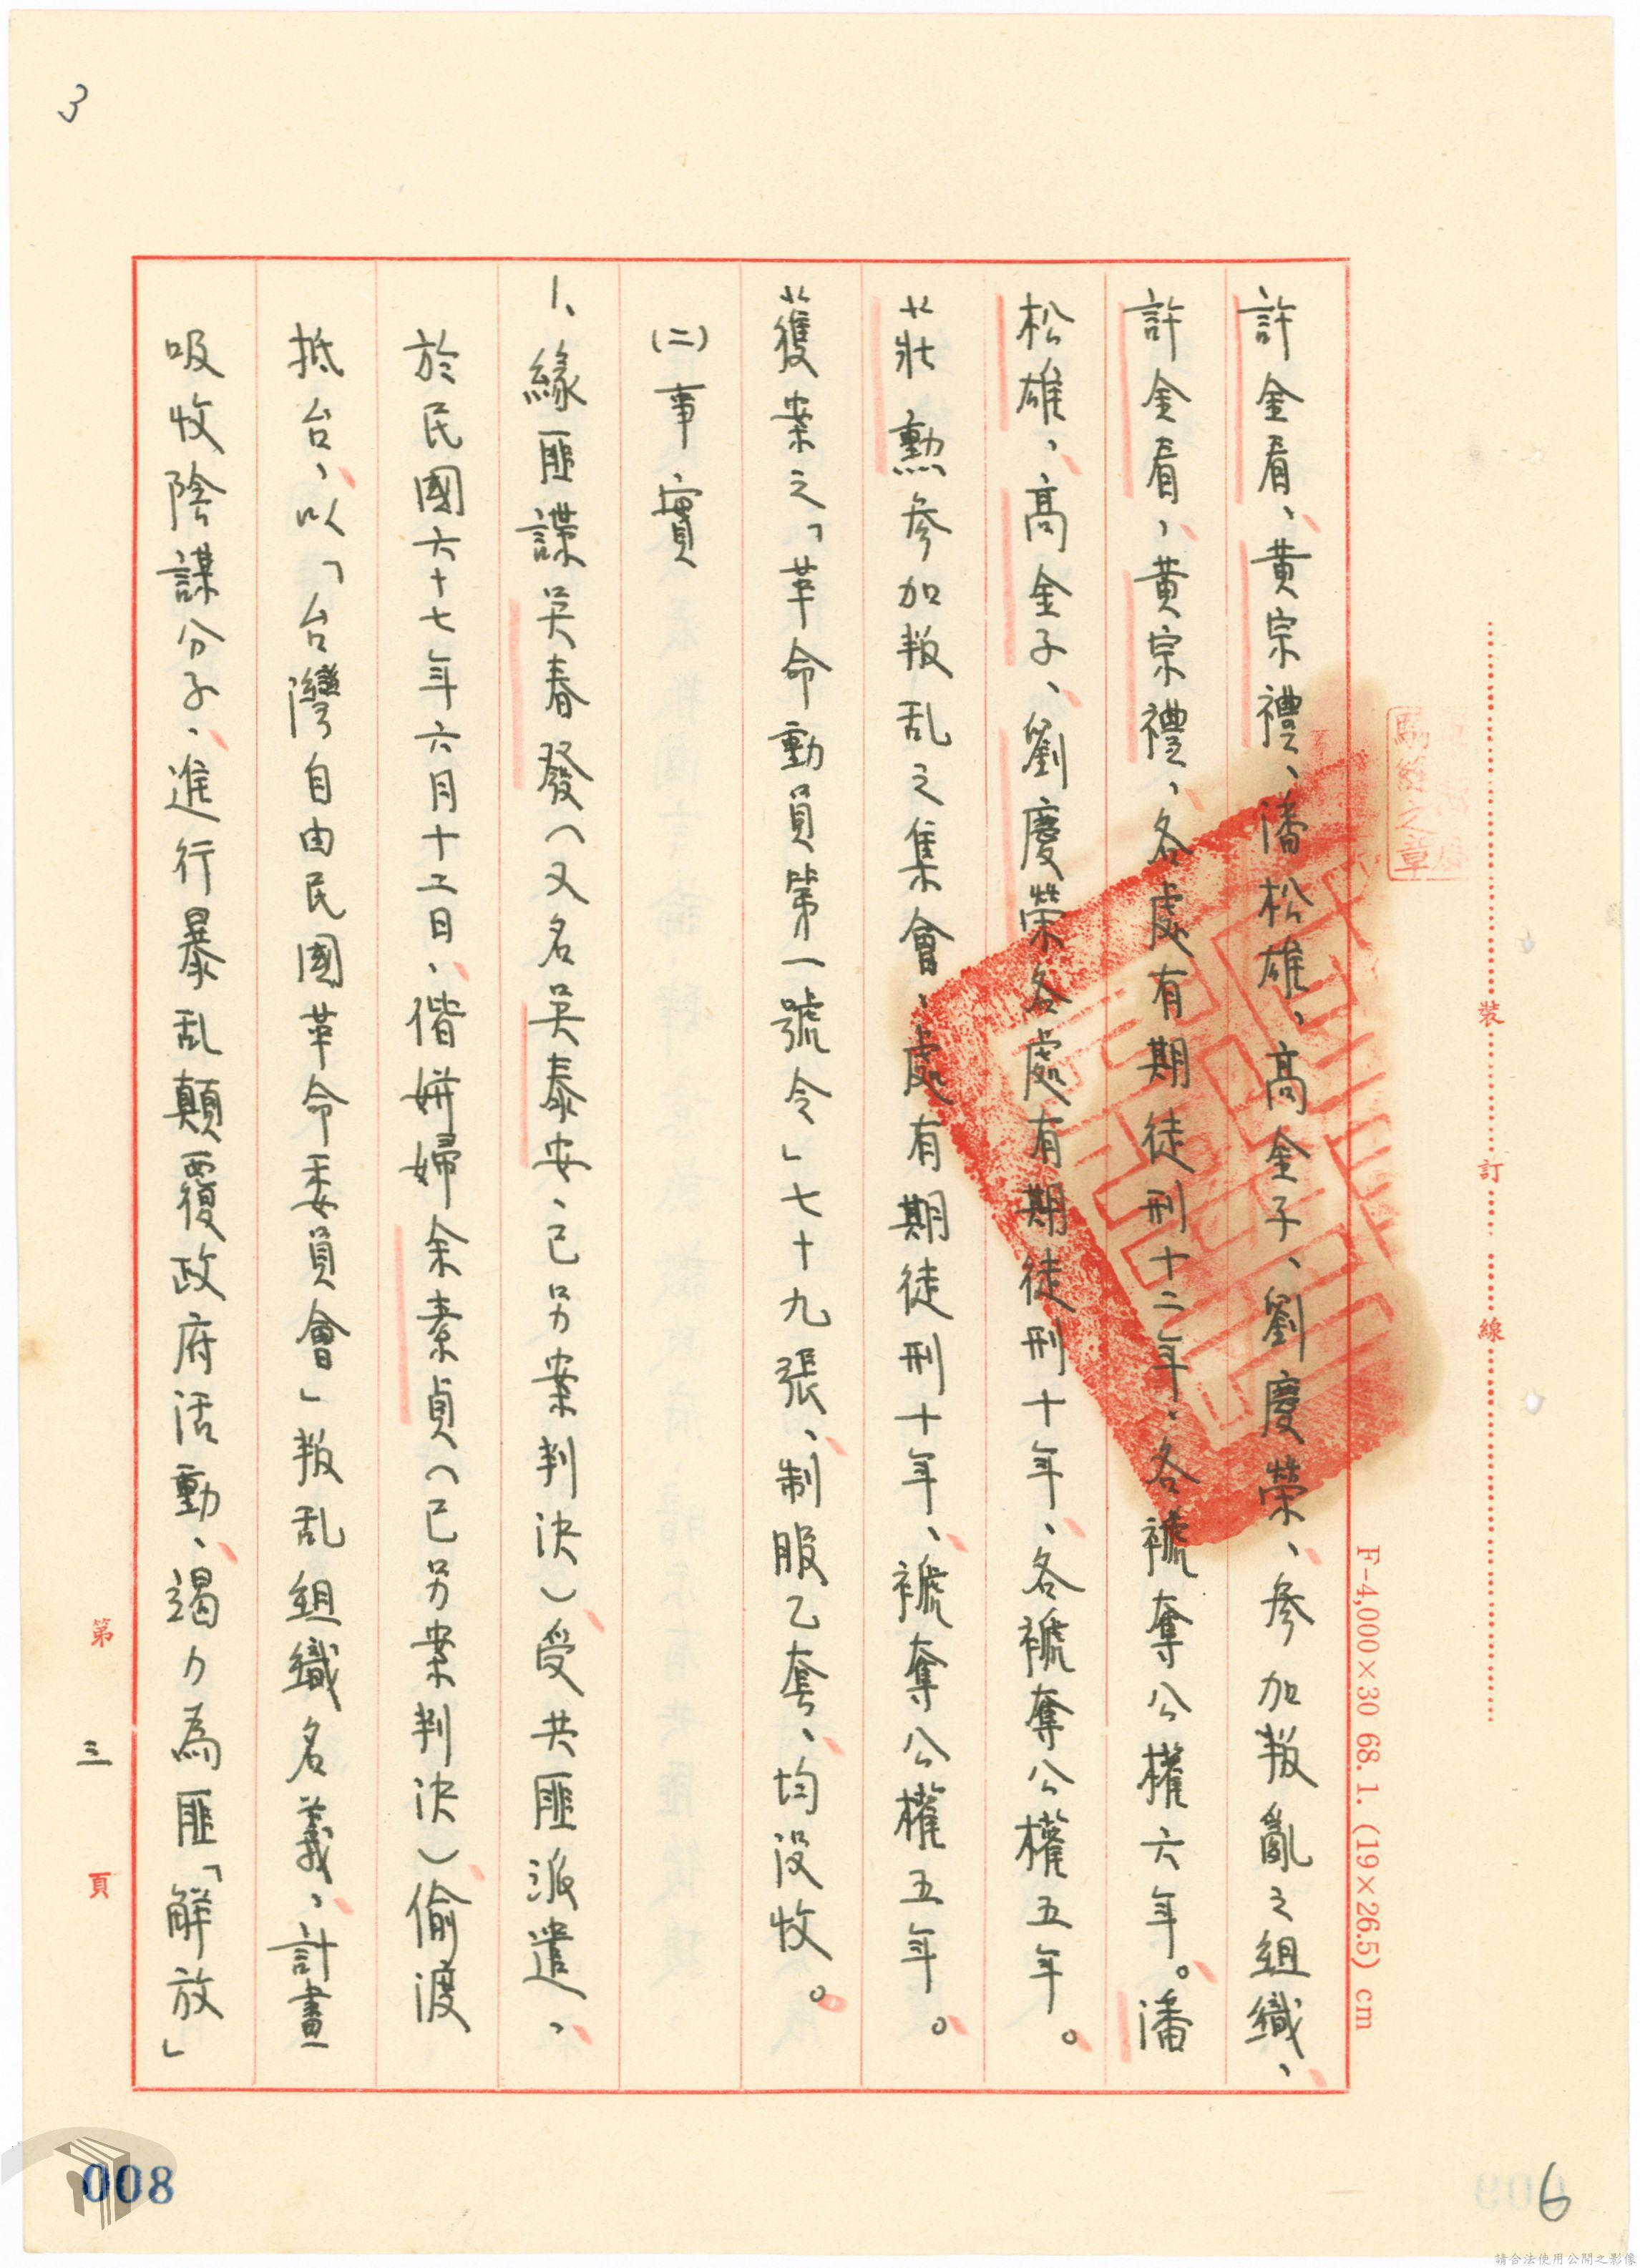 3
許金看、黃宗禮、潘松雄、高金子、劉慶榮、參加叛亂之組織、
許金看、黃宗禮、各處有期徒刑十二年、各褫奪公權六年。潘
松雄、高金子、劉慶榮各處有期徒刑十年、各褫奪公權五年。
莊勳參加叛乱之集會、處有期徒刑十年、褫奪公權五年。
獲案之「革命動員第一號令」七十九張、制服乙套、均没收。
(二)事實
1、緣匪諜吳春發(又名吳泰安、已另案判決)受共匪派遣、
於民國六十七年六月十二日、偕姘婦余素貞(已另案判決)偷渡
抵台、以「台灣自由民國革命委員會」叛乱組織名義、計畫
吸收陰謀分子、進行暴乱顛覆政府活動、竭力為匪「解放」
裝
訂
線
F-4,000×30 68.1. (19×26.5) cm
第 三 頁
008
6
請合法使用公開之影像